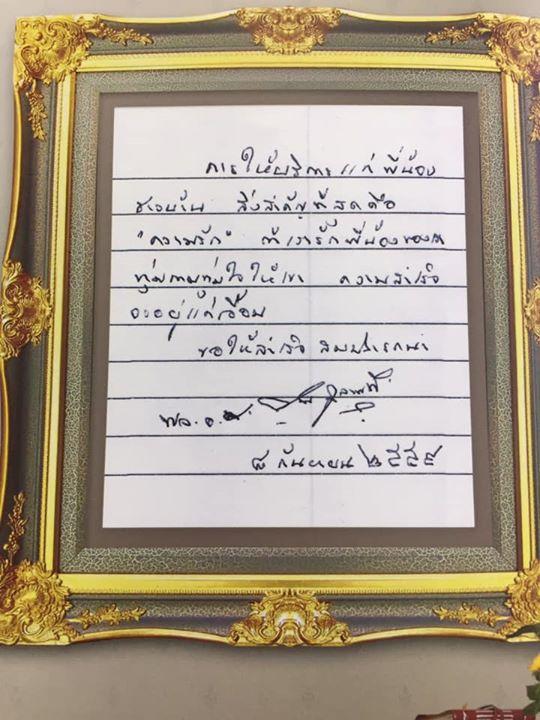 การให้บริการแก่ พี่น้อง
ชาวบ้าน สิ่งสำคัญที่สุดคือ
"ความรัก" ถ้าเรารักพี่น้องของเรา
ทุ่มกายทุ่มใจให้เขา ความสำเร็จ
จะอยู่แค่เอื้อม
ขอให้สำเร็จ สมปรารถนา
พล.อ.
๘ กันยายน ๒๕๕๙